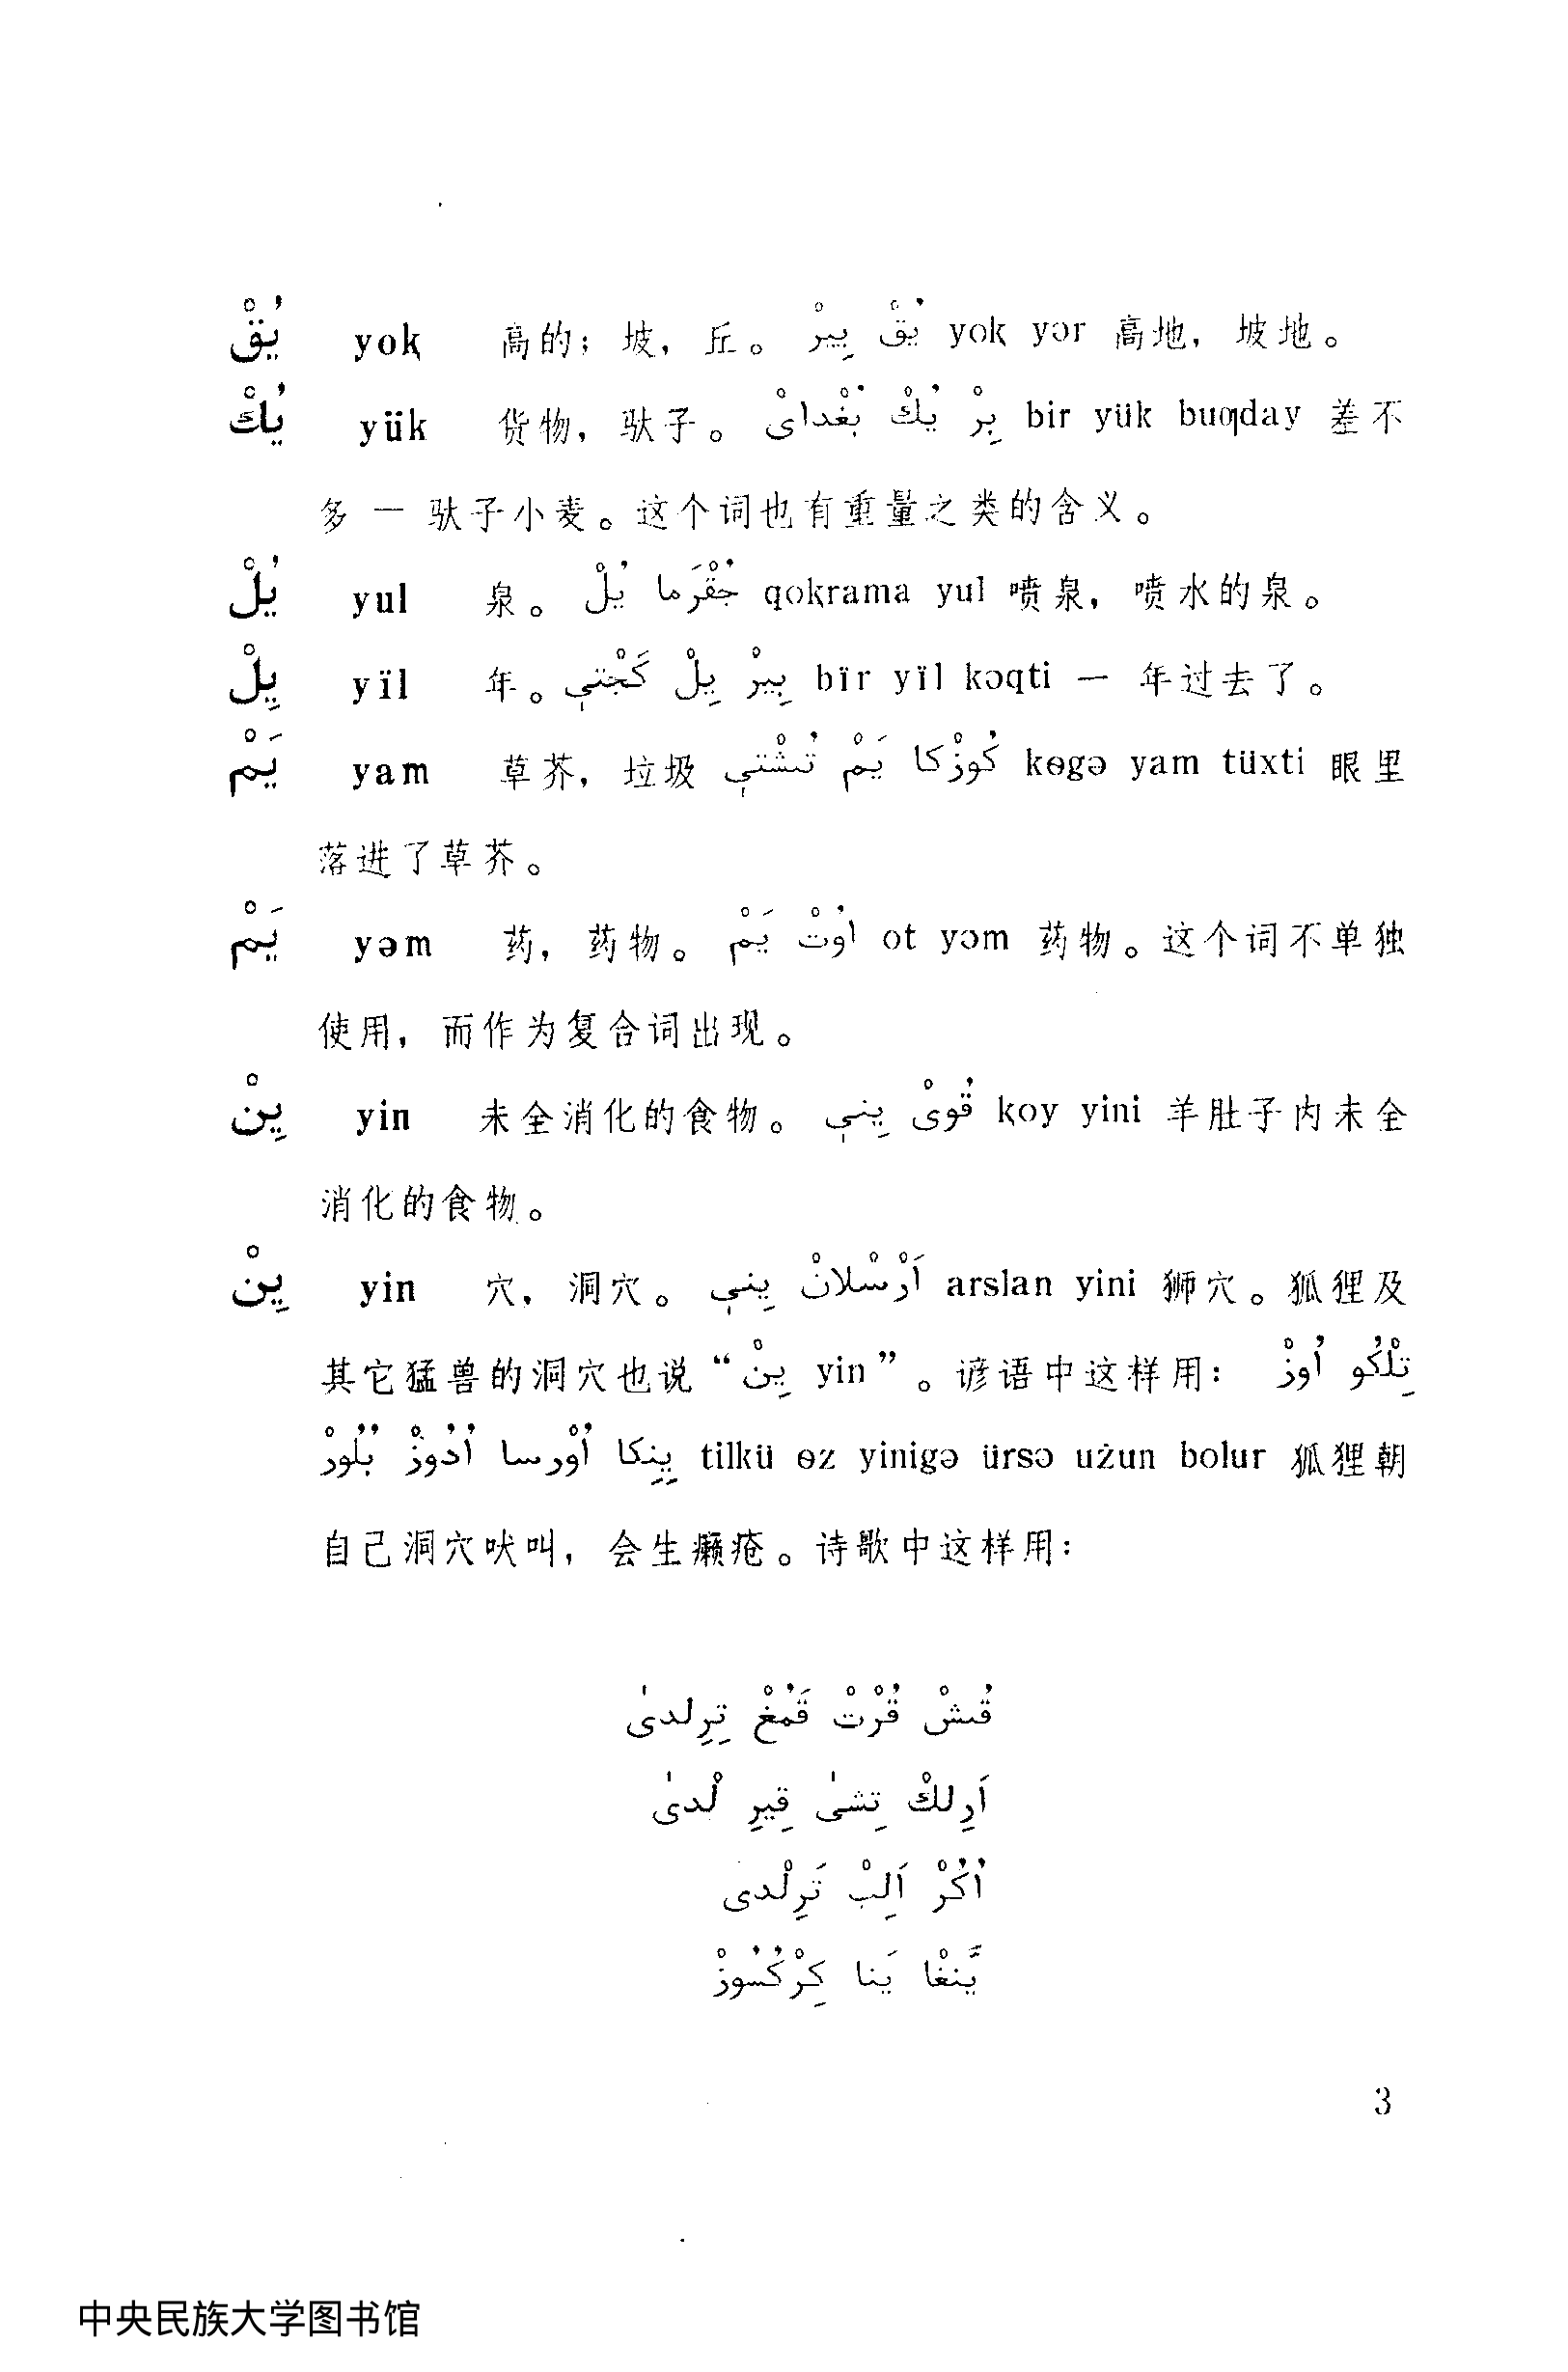 يُقْ yoⱪ 高的；坡，丘。 يُقْ يِيرْ yoⱪ yər 高地，坡地。
يُكْ yük 货物，驮子。 بِرْ يُكْ بُغْداىْ bir yük buƣday 差不
多一驮子小麦。这个词也有重量之类的含义。
يُلْ yul 泉。 جُقْرَما يُلْ qokrama yul 喷泉，喷水的泉。
يِلْ yïl 年。 بِيرْ يِلْ كَجْتىِ bïr yïl kəqti 一年过去了。
يَمْ yam 草芥，垃圾 كُوزْكا يَمْ تُشْتىِ kɵgə yam tüxti 眼里
落进了草芥。
يَمْ yəm 药，药物。 اوُتْ يَمْ ot yəm 药物。这个词不单独
使用，而作为复合词出现。
يِنْ yin 未全消化的食物。 قُوىْ يِنىِ ⱪoy yini 羊肚子内未全
消化的食物。
يِنْ yin 穴，洞穴。 اَرْسْلانْ يِنىِ arslan yini 狮穴。狐狸及
其它猛兽的洞穴也说“يِنْ yin”。谚语中这样用： تِلْكُو اُوزْ
يِنِكا اُوْرسا اُدُوزْ بُلُورْ tilkü ɵz yinigə ürsə użun bolur 狐狸朝
自己洞穴吠叫，会生癞疮。诗歌中这样用：
قُشْ قُرْتْ قَمُغْ تِرِلدىٰ
اَرِلكْ تِشىٰ قِيرِ لْدىٰ
اُكُرْ اَلِبْ تَرِلْدى
يَّنغْا يَنا كِرْكُسُوزْ
3
中央民族大学图书馆